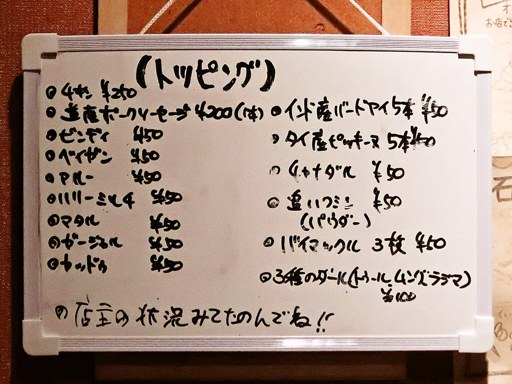 (トッピング)
チキ ¥250
道産ポークソーセージ ¥200(1本)
ビンディ ¥50
ベイガン ¥50
アルー ¥50
ハリーミルチ ¥50
マタル ¥50
ガージャル ¥50
カッドゥ ¥50
インド産バードアイ5本 ¥50
タイ産ピッキーヌ 5本¥50
チャナダル ¥50
追いクミン ¥50
(パウダー)
バイマックル 3枚 ¥50
3種のダール(トゥール、ムング、チャナ)
¥100
店主の状況みてたのんでね!!